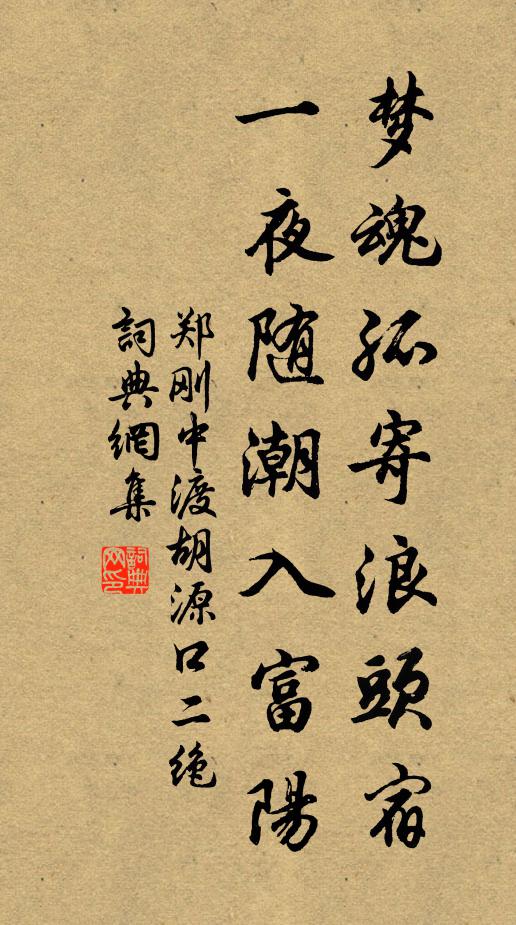 梦魂孤寄浪頭宿
一夜随潮入富陽
郑刚中渡胡源口二绝
詞典網集
詞典网印